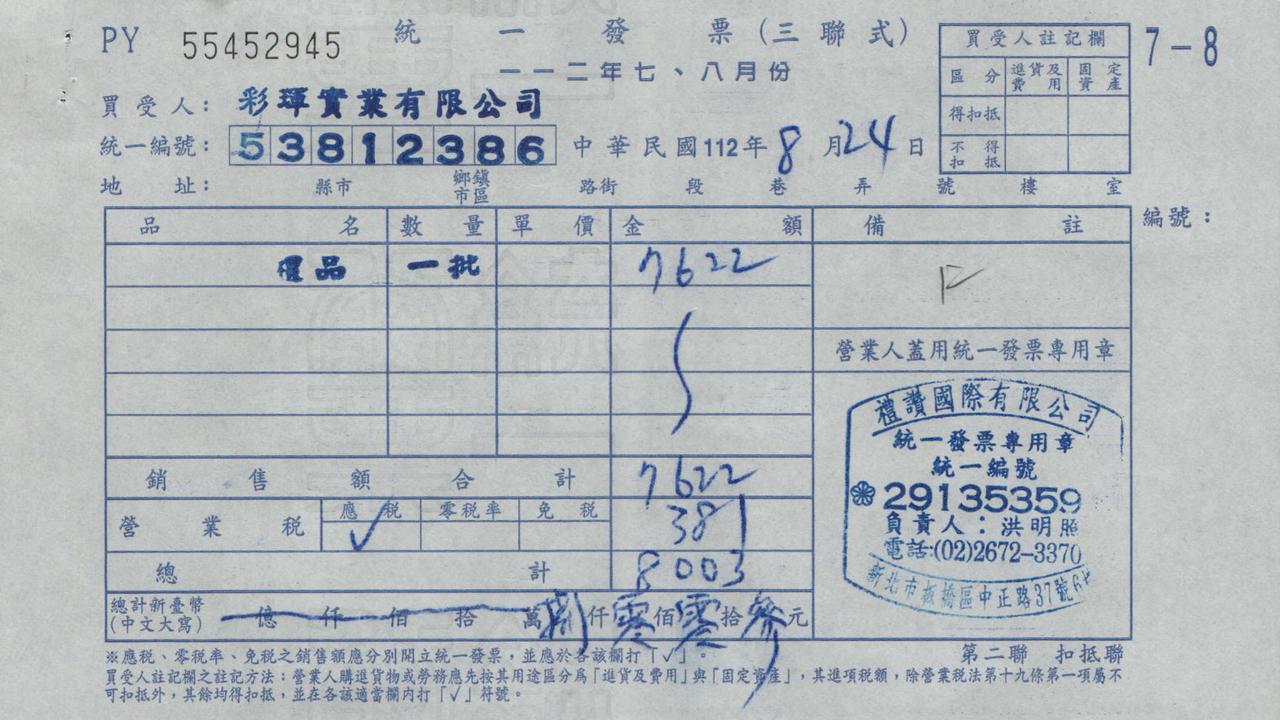 PY 55452945 統一發票(三聯式) 7-8
一一二年七、八月份
買受人註記欄
區分 進貨及費用 固定資產
得扣抵
不得扣抵
買受人：彩琿實業有限公司
統一編號：53812386 中華民國112年8月24日
地址： 縣市 鄉鎮市區 路街 段 巷 弄 號 樓 室
編號：
品名 數量 單價 金額 備註
禮品 一批 7622
營業人蓋用統一發票專用章
銷售額合計 7622
營業稅 應稅 ✓ 零稅率 免稅 381
總計 8003
總計新臺幣(中文大寫) 億 仟 佰 拾 萬 捌仟零佰零拾參元
禮讚國際有限公司
統一發票專用章
統一編號
29135359
負責人：洪明照
電話:(02)2672-3370
新北市板橋區中正路37號
※應稅、零稅率、免稅之銷售額應分別開立統一發票，並應於各該欄打「✓」。
第二聯 扣抵聯
買受人註記欄之註記方法：營業人購進貨物或勞務應先按其用途區分為「進貨及費用」與「固定資產」，其進項稅額，除營業稅法第十九條第一項屬不
可扣抵外，其餘均得扣抵，並在各該適當欄內打「✓」符號。